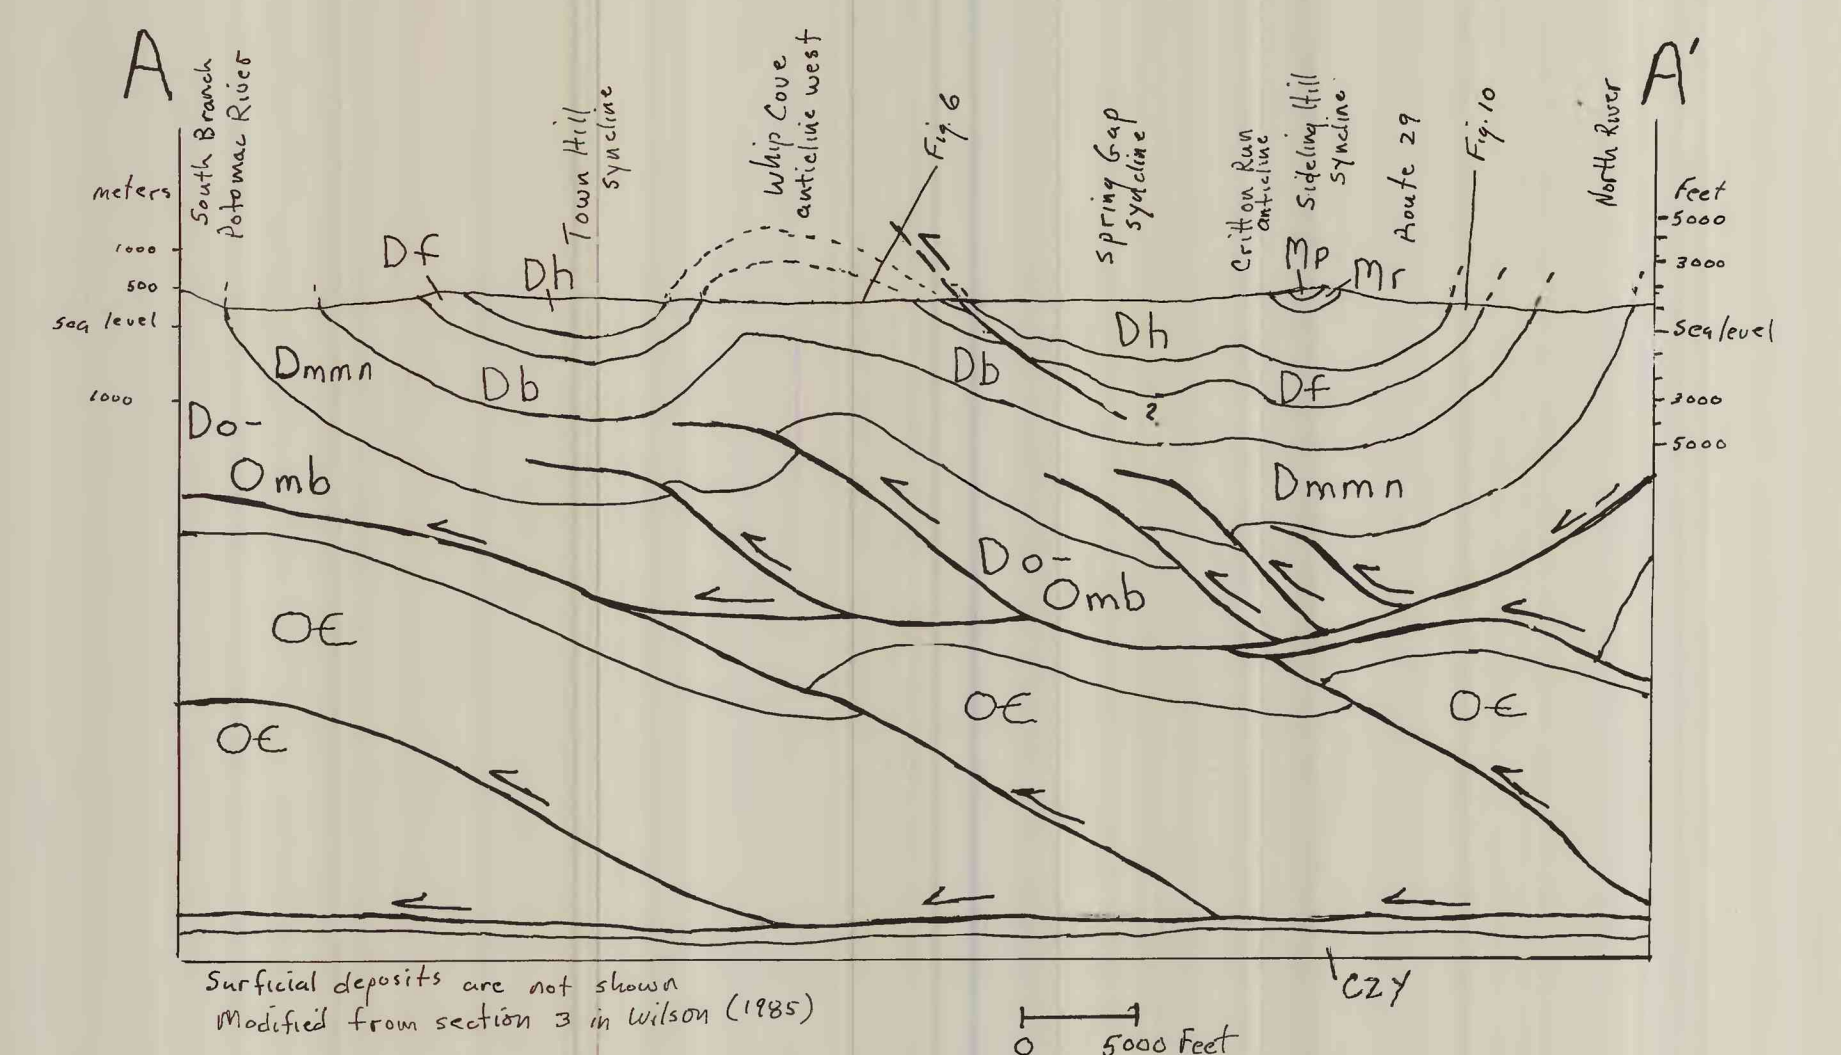 A
A'
South Branch
Potomac River
Town Hill
syncline
Whip Cove
anticline west
Fig. 6
Spring Gap
syncline
Critton Run
anticline
Sideling Hill
syncline
Route 29
Fig. 10
North River
meters
1000
500
sea level
1000
Feet
5000
3000
Sea level
3000
5000
Df
Dh
Mp
Mr
Dh
Dmmn
Db
Db
Df
Do-
Omb
Dmmn
Do-
Omb
O€
O€
O€
O€
?
Surficial deposits are not shown
Modified from section 3 in Wilson (1985)
CZY
0 5000 Feet